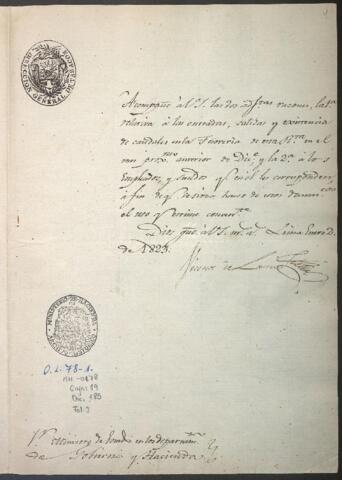 Acompaño á V.S. las dos adj.tas razones, la 1.a
relativa á las entradas, salidas y existencia
de caudales en la Tesoreria de esta
mes prox.mo anterior de Dic.e y la 2.a á los
Empleados, y sueldos q.e en él les corresponden
á fin de q.e se sirva hacer de estos docum.tos
el uso q.e estime conven.te
Dios gue. á V.S. m.s a.s Lima Enero 2
de 1823.
O.L. 78-1.
MH-0178
Caja 19
Doc. 185
Fol. 2
Ministro de Estado en los departam.tos
de Gobierno y Hacienda